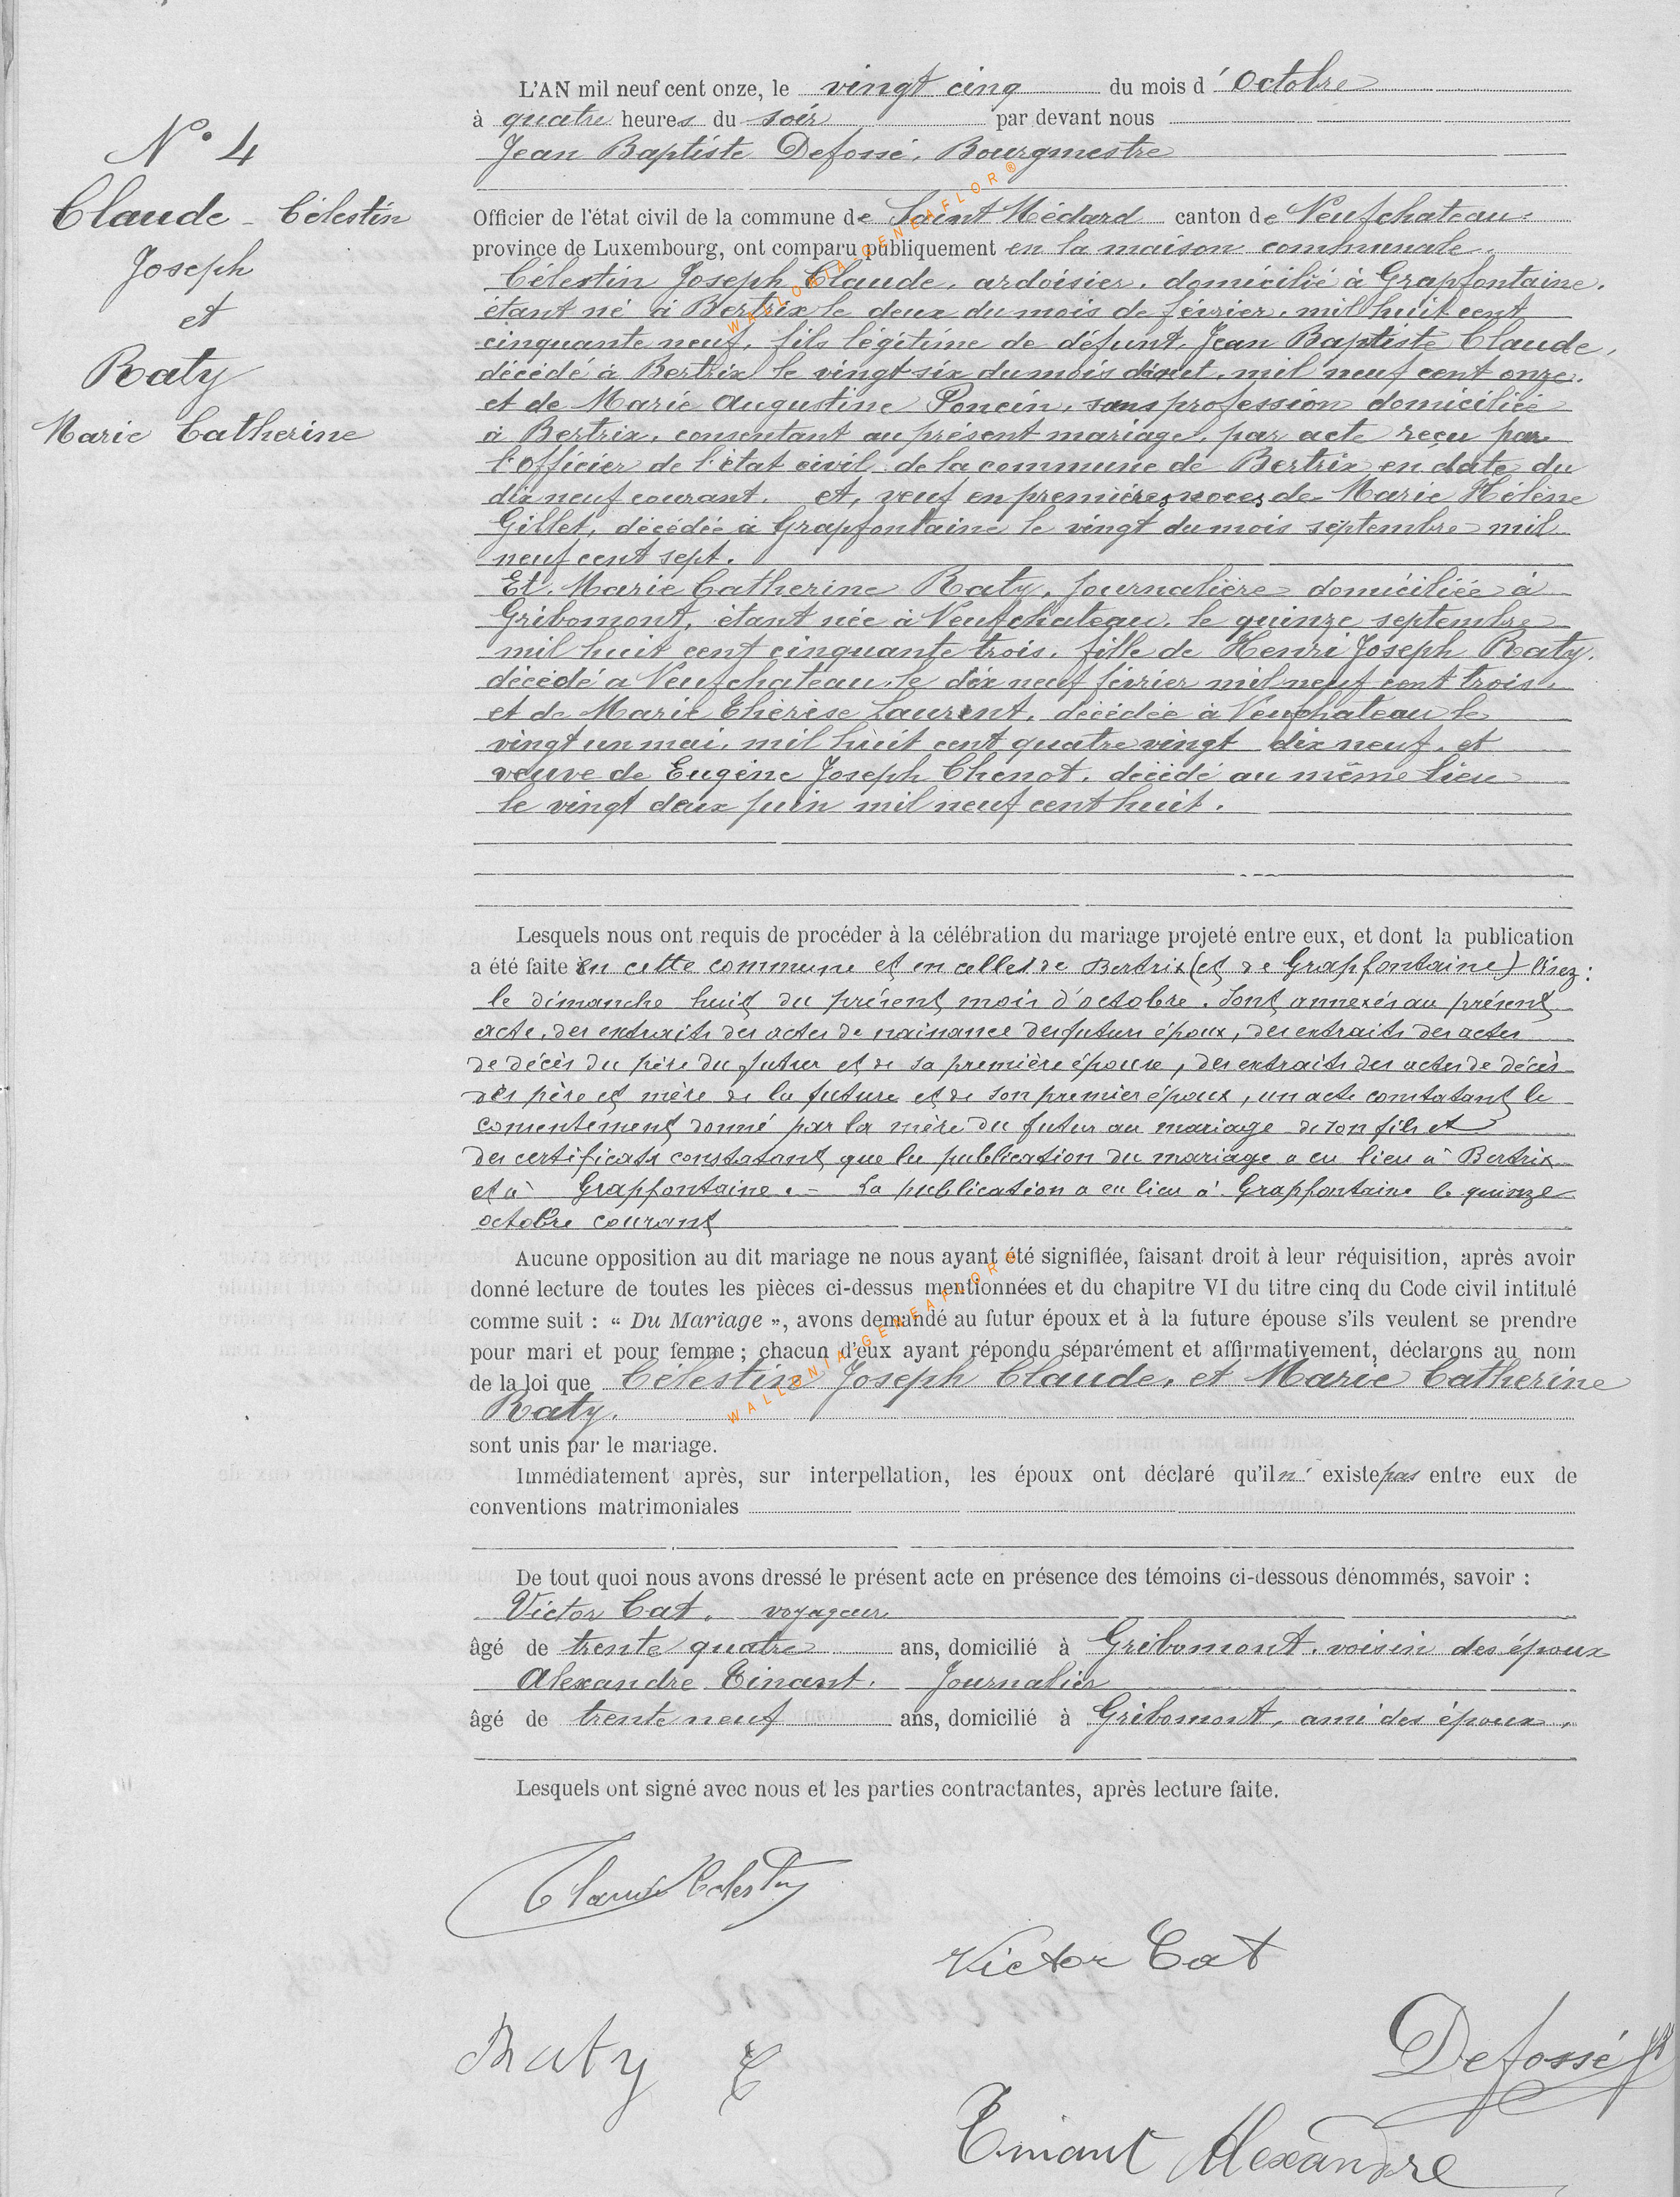 L'AN mil neuf cent onze, le vingt cinq du mois d' Octobre
à quatre heures du soir par devant nous
Jean Baptiste Defossé, Bourgmestre
N° 4
Claude - Célestin
Joseph
et
Raty
Marie Catherine
Officier de l'état civil de la commune de Saint Médard canton de Neufchateau
province de Luxembourg, ont comparu publiquement en la maison communale.
Célestin Joseph Claude, ardoisier, domicilié à Grapfontaine,
étant né à Bertrix le deux du mois de février, mil huit cent
cinquante neuf, fils légitime de défunt Jean Baptiste Claude,
décédé à Bertrix le vingt six du mois, mil neuf cent onze.
et de Marie Augustine Poncin, sans profession domiciliée
à Bertrix, consentant au présent mariage, par acte reçu par
l'Officier de l'état civil de la commune de Bertrix en date du
dix neuf courant. et, veuf en premières noces de Marie Hélène
Gillet, décédée à Grapfontaine le vingt du mois septembre mil
neuf cent sept.
Et. Marie Catherine Raty, journalière domiciliée à
Gribomont, étant née à Neufchateau, le quinze septembre
mil huit cent cinquante trois, fille de Henri Joseph Raty,
décédé à Neufchateau, le dix neuf février mil neuf cent trois,
et de Marie Thérèse Laurent, décédée à Neuchateau le
vingt un mai, mil huit cent quatre vingt dix neuf, et
veuve de Eugène Joseph Chenot, décédé au même lieu
le vingt deux juin mil neuf cent huit.
Lesquels nous ont requis de procéder à la célébration du mariage projeté entre eux, et dont la publication
a été faite en cette commune et en celles de Bertrix (et de Grapfontaine) lisez :
le dimanche huit du présent mois d'octobre. Sont annexés au présent
acte, des extraits des actes de naissance des futurs époux, des extraits des actes
de décès du père du futur et de sa première épouse, des extraits des actes de décès
des père et mère de la future et de son premier époux, un acte constatant le
consentement donné par la mère du futur au mariage de son fils et
des certificats constatant que la publication du mariage a eu lieu à Bertrix
et à Grapfontaine. - La publication a eu lieu à Grapfontaine le quinze
octobre courant
Aucune opposition au dit mariage ne nous ayant été signifiée, faisant droit à leur réquisition, après avoir
donné lecture de toutes les pièces ci-dessus mentionnées et du chapitre VI du titre cinq du Code civil intitulé
comme suit : « Du Mariage », avons demandé au futur époux et à la future épouse s'ils veulent se prendre
pour mari et pour femme ; chacun d'eux ayant répondu séparément et affirmativement, déclarons au nom
de la loi que Célestin Joseph Claude, et Marie Catherine
Raty.
sont unis par le mariage.
Immédiatement après, sur interpellation, les époux ont déclaré qu'il n' existe pas entre eux de
conventions matrimoniales
De tout quoi nous avons dressé le présent acte en présence des témoins ci-dessous dénommés, savoir :
Victor Cat, voyageur
âgé de trente quatre ans, domicilié à Gribomont, voisin des époux
Alexandre Tinant, Journalier
âgé de trente neuf ans, domicilié à Gribomont, ami des époux,
Lesquels ont signé avec nous et les parties contractantes, après lecture faite.
Claude Célestin
Victor Cat
Raty C
Defossé
Tinant Alexandre
WALLONIA GENEAFLOR ®
WALLONIA GENEAFLOR ®